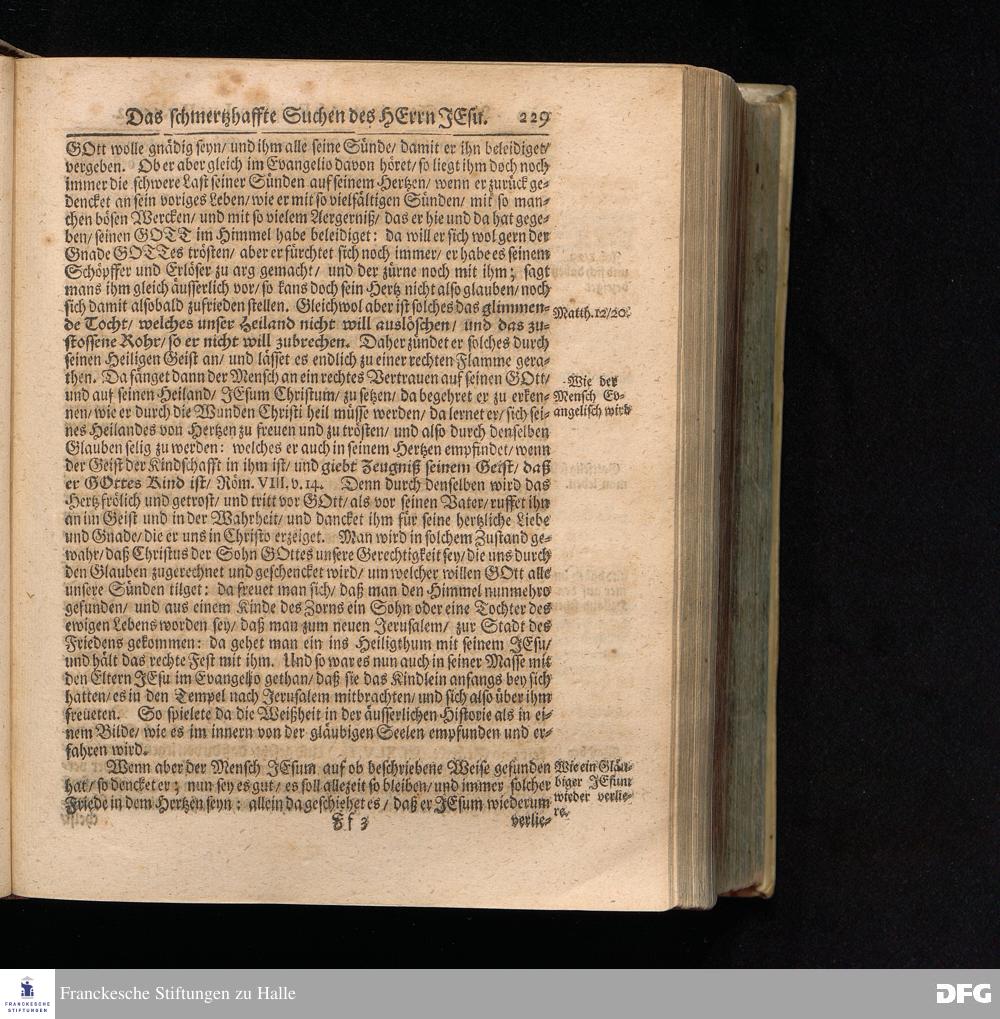 Das schmertzhaffte Suchen des HErrn JEsu. 229
GOtt wolle gnädig seyn/ und ihm alle seine Sünde/ damit er ihn beleidiget/
vergeben. Ob er aber gleich im Evangelio davon höret/ so liegt ihm doch noch
immer die schwere Last seiner Sünden auf seinem Hertzen/ wenn er zurück ge-
dencket an sein voriges Leben/ wie er mit so vielfältigen Sünden/ mit so man-
chen bösen Wercken/ und mit so vielem Aergerniß/ das er hie und da hat gege-
ben/ seinen GOTT im Himmel habe beleidiget: da will er sich wol gern der
Gnade GOTTes trösten/ aber er fürchtet sich noch immer/ er habe es seinem
Schöpffer und Erlöser zu arg gemacht/ und der zürne noch mit ihm; sagt
mans ihm gleich äusserlich vor/ so kans doch sein Hertz nicht also glauben/ noch
sich damit alsobald zufrieden stellen. Gleichwol aber ist solches das glimmen-
de Tocht/ welches unser Heiland nicht will auslöschen/ und das zu-
stossene Rohr/ so er nicht will zubrechen. Daher zündet er solches durch
seinen Heiligen Geist an/ und lässet es endlich zu einer rechten Flamme gera-
then. Da fänget dann der Mensch an ein rechtes Vertrauen auf seinen GOtt/
und auf seinen Heiland/ JEsum Christum/ zu setzen/ da begehret er zu erken-
nen/ wie er durch die Wunden Christi heil müsse werden/ da lernet er/ sich sei-
nes Heilandes von Hertzen zu freuen und zu trösten/ und also durch denselben
Glauben selig zu werden: welches er auch in seinem Hertzen empfindet/ wenn
der Geist der Kindschafft in ihm ist/ und giebt Zeugniß seinem Geist/ daß
er GOttes Kind ist/ Röm. VIII. v. 14. Denn durch denselben wird das
Hertz frölich und getrost/ und tritt vor GOtt/ als vor seinen Vater/ ruffet ihn
an im Geist und in der Wahrheit/ und dancket ihm für seine hertzliche Liebe
und Gnade/ die er uns in Christo erzeiget. Man wird in solchem Zustand ge-
wahr/ daß Christus der Sohn GOttes unsere Gerechtigkeit sey/ die uns durch
den Glauben zugerechnet und geschencket wird/ um welcher willen GOtt alle
unsere Sünden tilget: da freuet man sich/ daß man den Himmel nunmehro
gefunden/ und aus einem Kinde des Zorns ein Sohn oder eine Tochter des
ewigen Lebens worden sey/ daß man zum neuen Jerusalem/ zur Stadt des
Friedens gekommen: da gehet man ein ins Heiligthum mit seinem JEsu/
und hält das rechte Fest mit ihm. Und so war es nun auch in seiner Masse mit
den Eltern JEsu im Evangelio gethan/ daß sie das Kindlein anfangs bey sich
hatten/ es in den Tempel nach Jerusalem mitbrachten/ und sich also über ihm
freueten. So spielete da die Weißheit in der äusserlichen Historie als in ei-
nem Bilde/ wie es im innern von der gläubigen Seelen empfunden und er-
fahren wird.
Wenn aber der Mensch JEsum auf ob beschriebene Weise gefunden
hat/ so dencket er; nun sey es gut/ es soll allezeit so bleiben/ und immer solcher
Friede in dem Hertzen seyn: allein da geschiehet es/ daß er JEsum wiederum
Ff 3 verlie-
Matth. 12/20.
Wie der
Mensch Ev-
angelisch wird
Wie ein Gläu-
biger JEsum
wieder verlie-
re.
FRANCKESCHE
STIFTUNGEN
Franckesche Stiftungen zu Halle
DFG